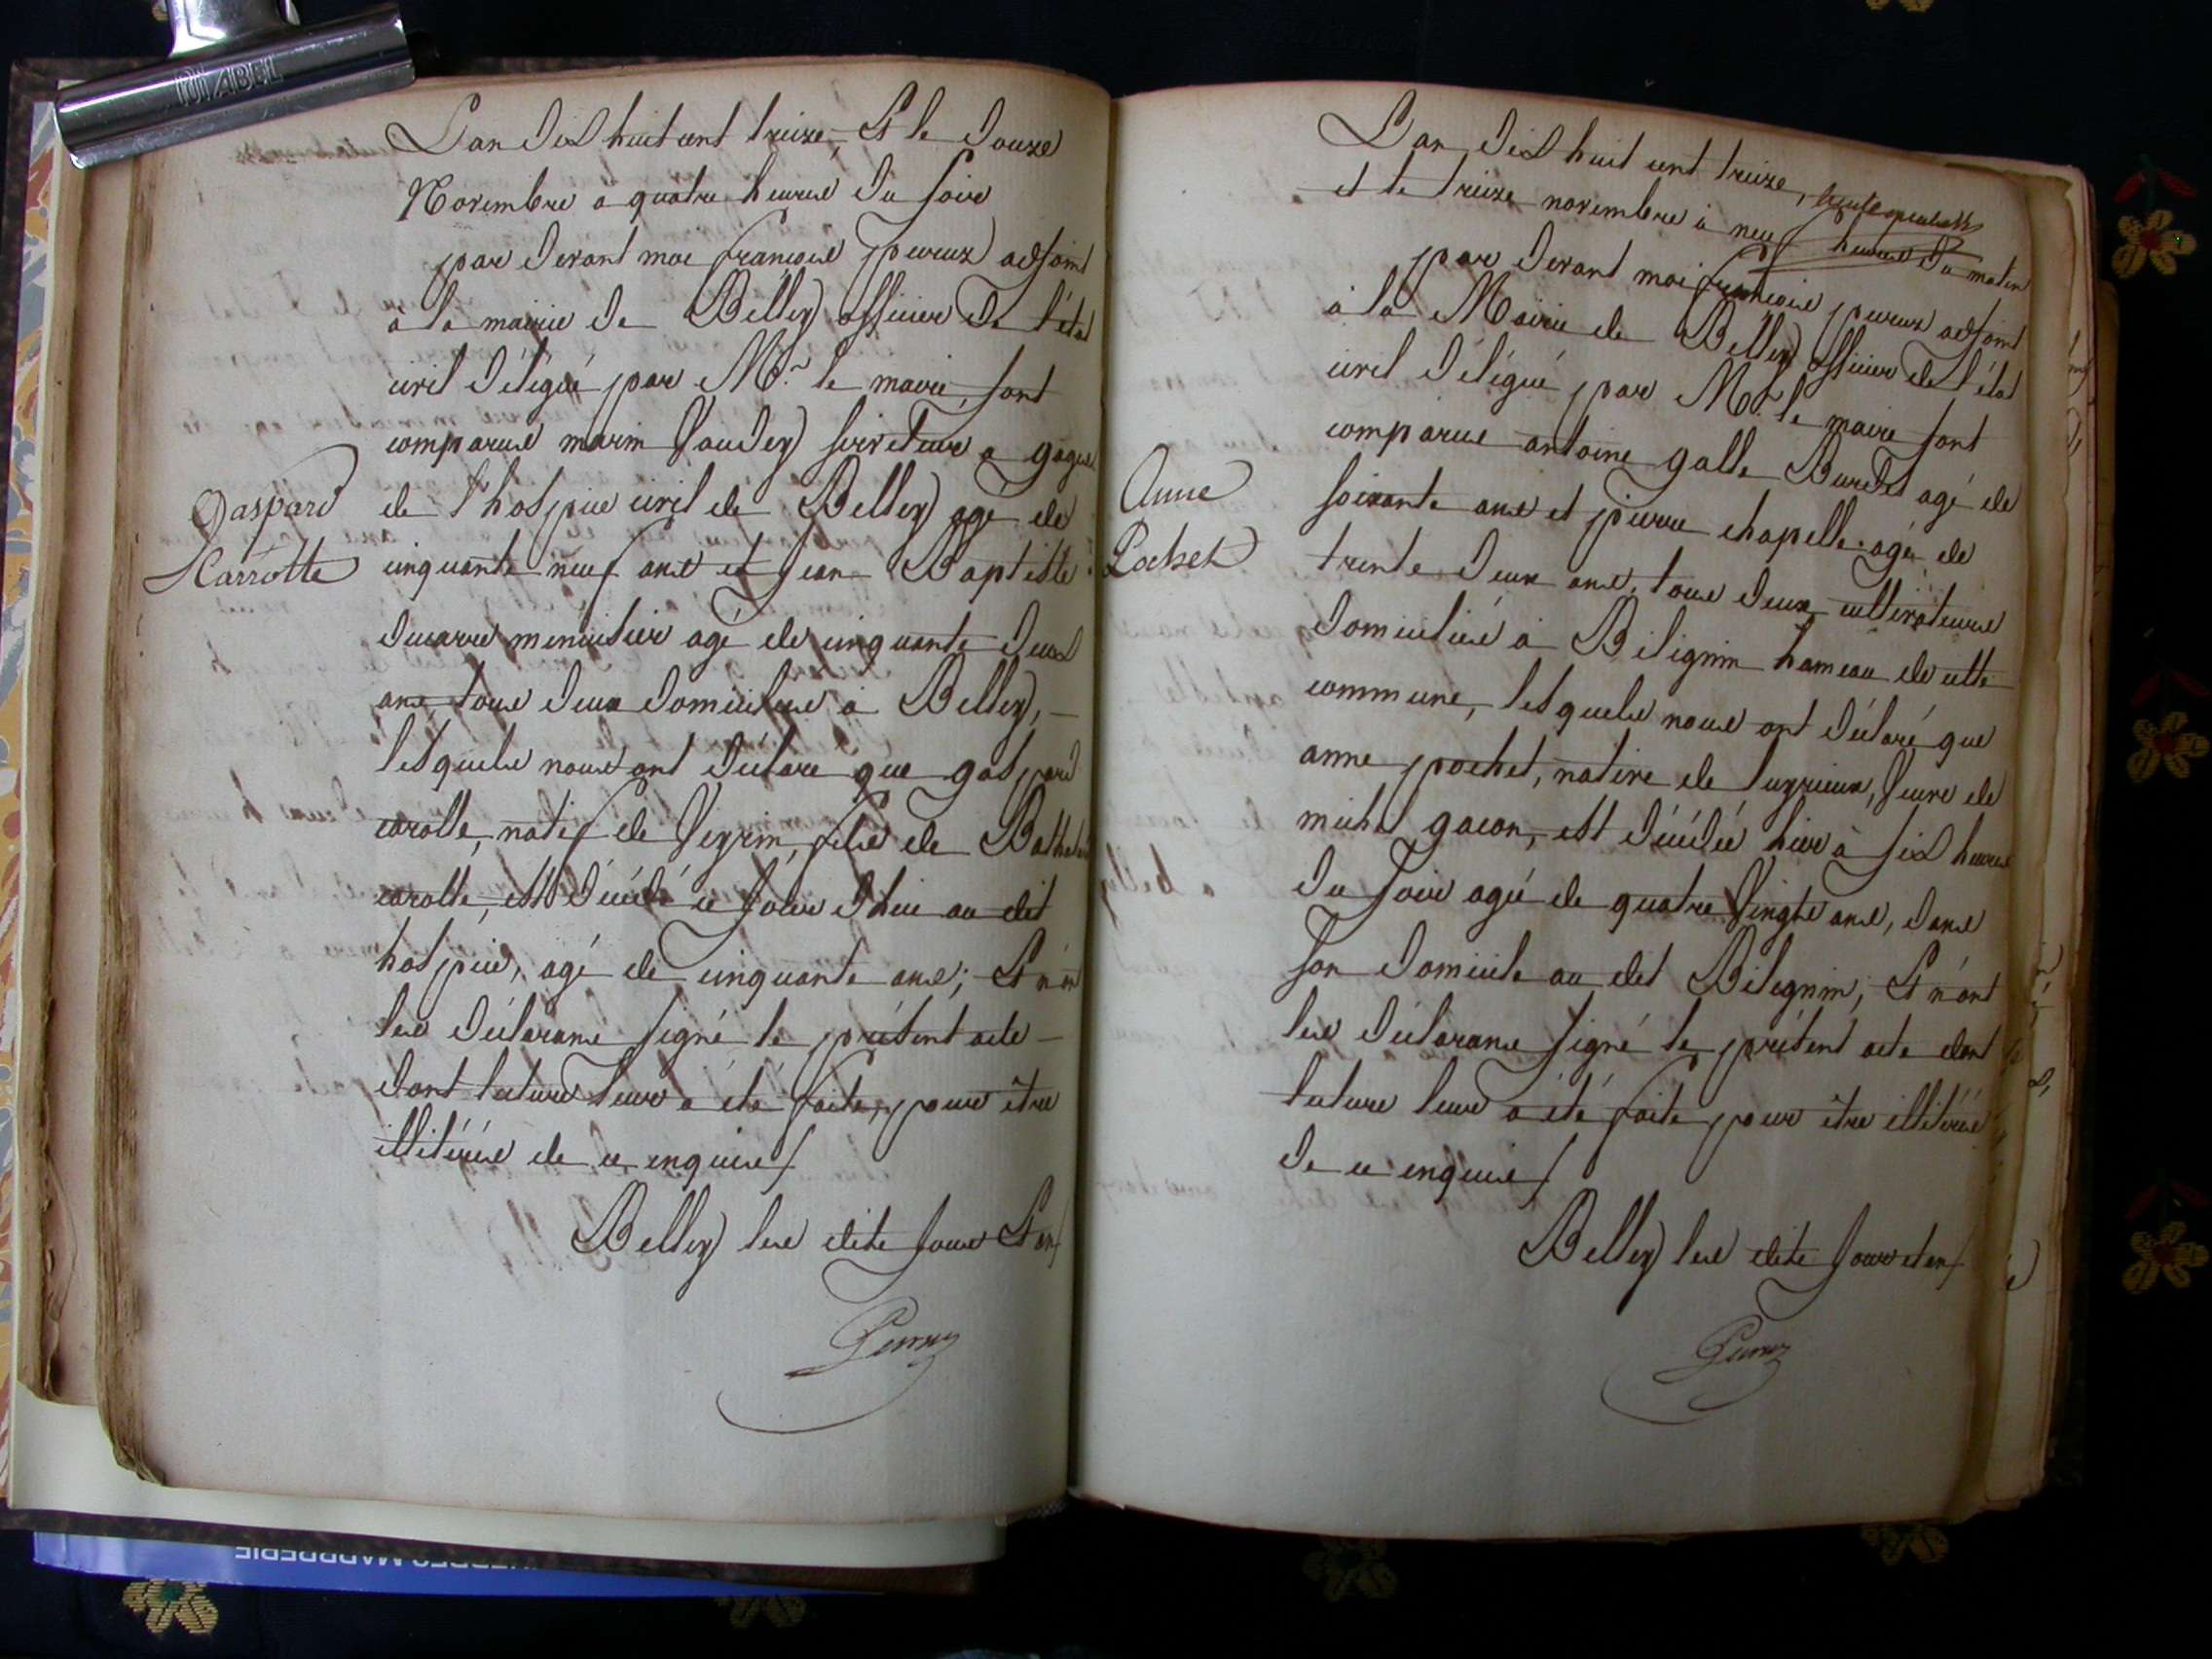 DIABEL
L'an dix huit cent treize, Et le douze
Novembre a quatre heures du soir
par devant moi françois peyruz adjoint
à la mairie de Belley officier de l'état
civil délégué par Mr. le maire, sont
comparus marin serviteur a gages
de l'hospice civil de Belley agé de
cinquante neuf ans et jean Baptiste
ducarre menuisier agé de cinquante deux
ans tous deux domiciliés à Belley,
lesquels nous ont déclaré que gaspard
carotte, natif de Veyrin, fils de
carotte, est décédé ce jour d'hui au dit
hospice, agé de cinquante ans; Et n'ont
les déclarans signé le présent acte
dont lecture leur a été faite, pour être
illitérés de ce enquis/
Belley les dits jour Et an/
Gaspard
Carrotte
L'an dix huit cent treize,
et le treize novembre à neuf heures du matin
par devant moi françois peyruz adjoint
à la Mairie de Belley officier de l'état
civil délégué par Mr. le maire sont
comparus antoine galle Burdet agé de
soixante ans et pierre chapelle agé de
trente deux ans, tous deux cultivateurs
domiciliés à Bilignin hameau de cette
commune, lesquels nous ont déclaré que
anne pochet, native de Lugrieux, Veuve de
michel gacon, est décédée hier à six heures
du soir agée de quatre Vingts ans, dans
son domicile au dit Bilignin; Et n'ont
les déclarans signé le présent acte dont
lecture leur a été faite pour être illitérés
de ce enquis/
Belley les dits jour et an/
Anne
Pochet